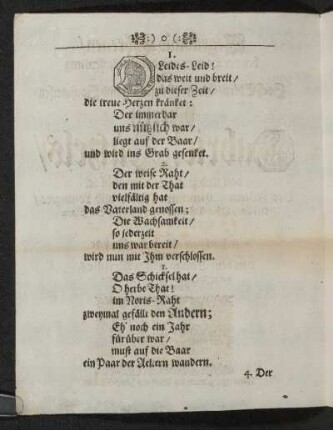 :) o (:
1.
O Leides-Leid!
das weit und breit/
zu dieser Zeit/
die treue Herzen kränket:
Der immerdar
uns nützlich war/
liegt auf der Baar/
und wird ins Grab gesenket.
2.
Der weise Raht/
den mit der That
vielfältig hat
das Vaterland genossen;
Die Wachsamkeit/
so jederzeit
uns war bereit/
wird nun mit Ihm verschlossen.
3.
Das Schicksel hat/
O herbe That!
im Noris-Raht
zweymal gefällt den Andern;
Eh' noch ein Jahr
für über war/
must auf die Baar
ein Paar der Aeltern wandern.
4. Der